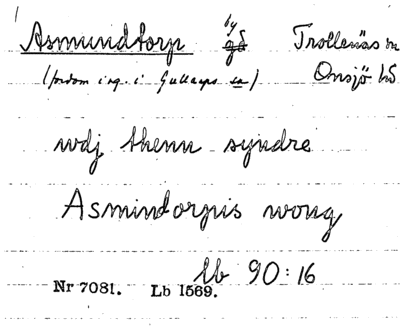 Asmundtorp by gd Trollenäs sn
(fordom ing. i Gullarps sn) Onsjö hd
wdj thenn syndre
Asmindorpis wong
lb 90:16
Nr 7081. Lb 1569.